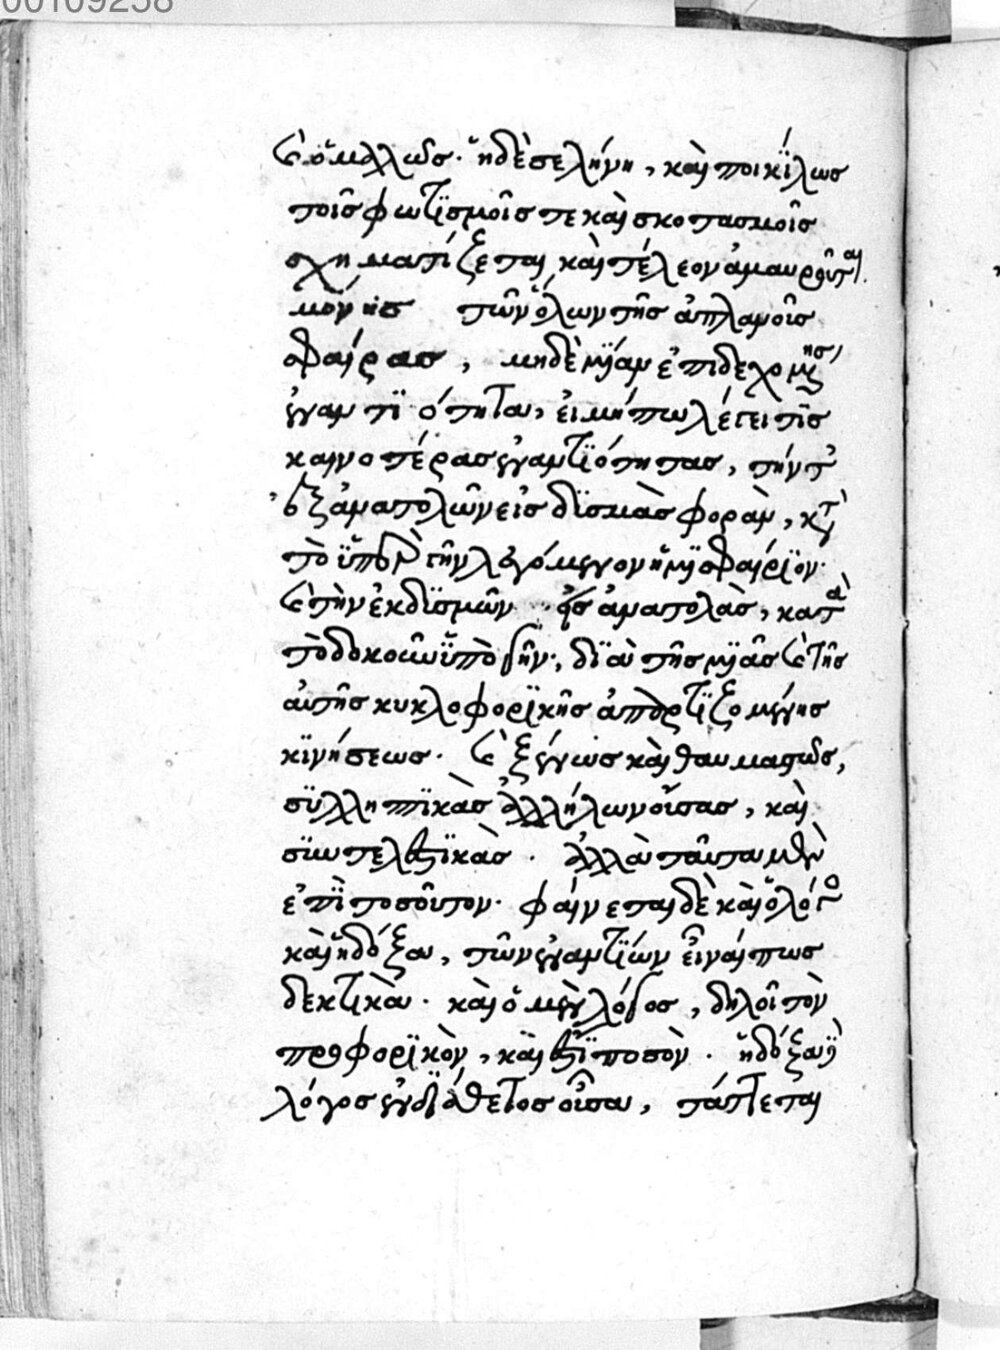 00109258
καὶ ὁμαλῶς· ἡ δὲ σελήνη, καὶ ποικίλως
τοῖς φωτισμοῖς τε καὶ σκοτασμοῖς
σχηματίζεται, καὶ τέλεον ἀμαυροῦται·
μόνης τῶν ὅλων τῆς ἀπλανοῦς
σφαίρας, μηδεμίαν ἐπιδεχομένης
ἐναντιότητα, εἰ μή πω λέγει τις
καινοτέρας ἐναντιότητας, τήν τ'
ἐξ ἀνατολῶν εἰς δυσμὰς φορὰν, κατὰ
τὸ ὑπὲρ γῆν λεγόμενον ἡμισφαίριον·
καὶ τὴν ἐκ δυσμῶν ἐς ἀνατολὰς, κατὰ
τὸ δοκοῦν ὑπὸ γῆν, διὰ τῆς μιᾶς καὶ τῆς
αὐτῆς κυκλοφορικῆς ἀπαρτιζομένης
κινήσεως· καὶ ξένως καὶ θαυμαστῶς,
συλληπτικὰς ἀλλήλων οὔσας, καὶ
συντελεστικάς. ἀλλὰ ταῦτα μὲν
ἐπὶ τοσοῦτον· φαίνεται δὲ καὶ ὁ λόγος
καὶ ἡ δόξα, τῶν ἐναντίων εἶναί πως
δεκτικὰ· καὶ ὁ μὲν λόγος, δηλοῖ τὸν
προφορικὸν, καὶ ἔστι ποσὸν· ἡ δόξα δὲ
λόγος ἐνδιάθετος οὖσα, τάττεται